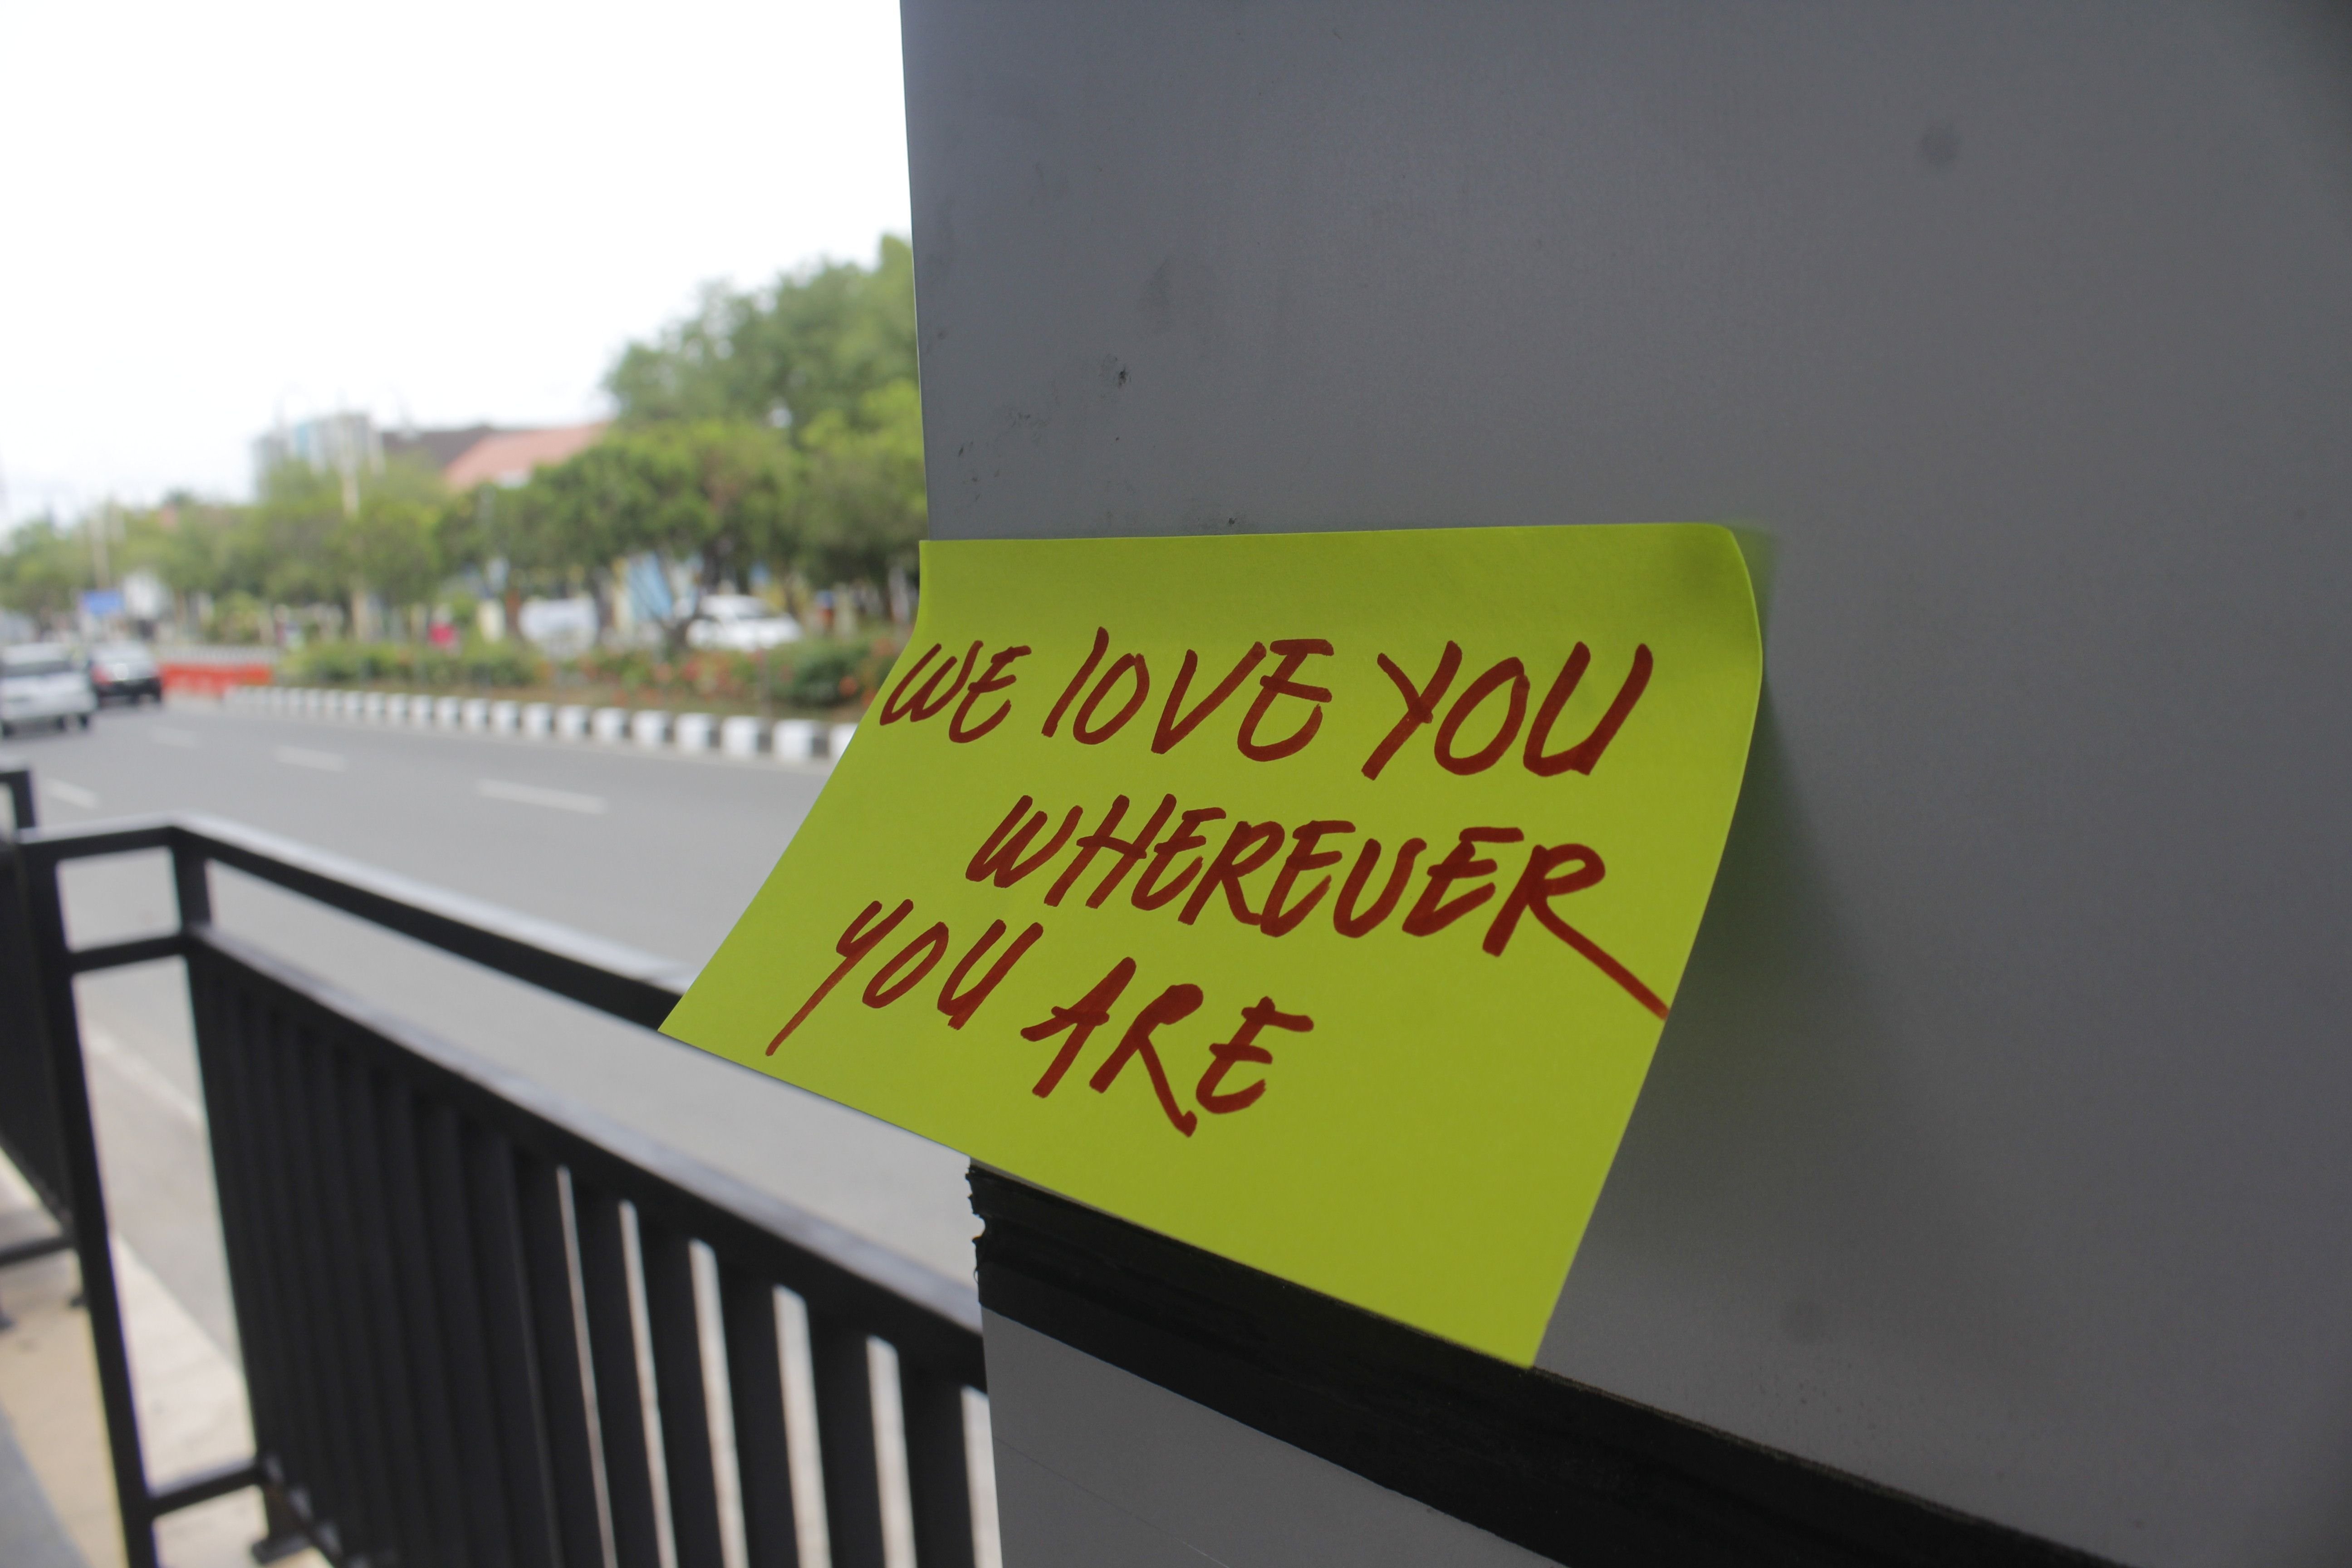 WE lOVE YOU
WHEREVER
YOU ARE